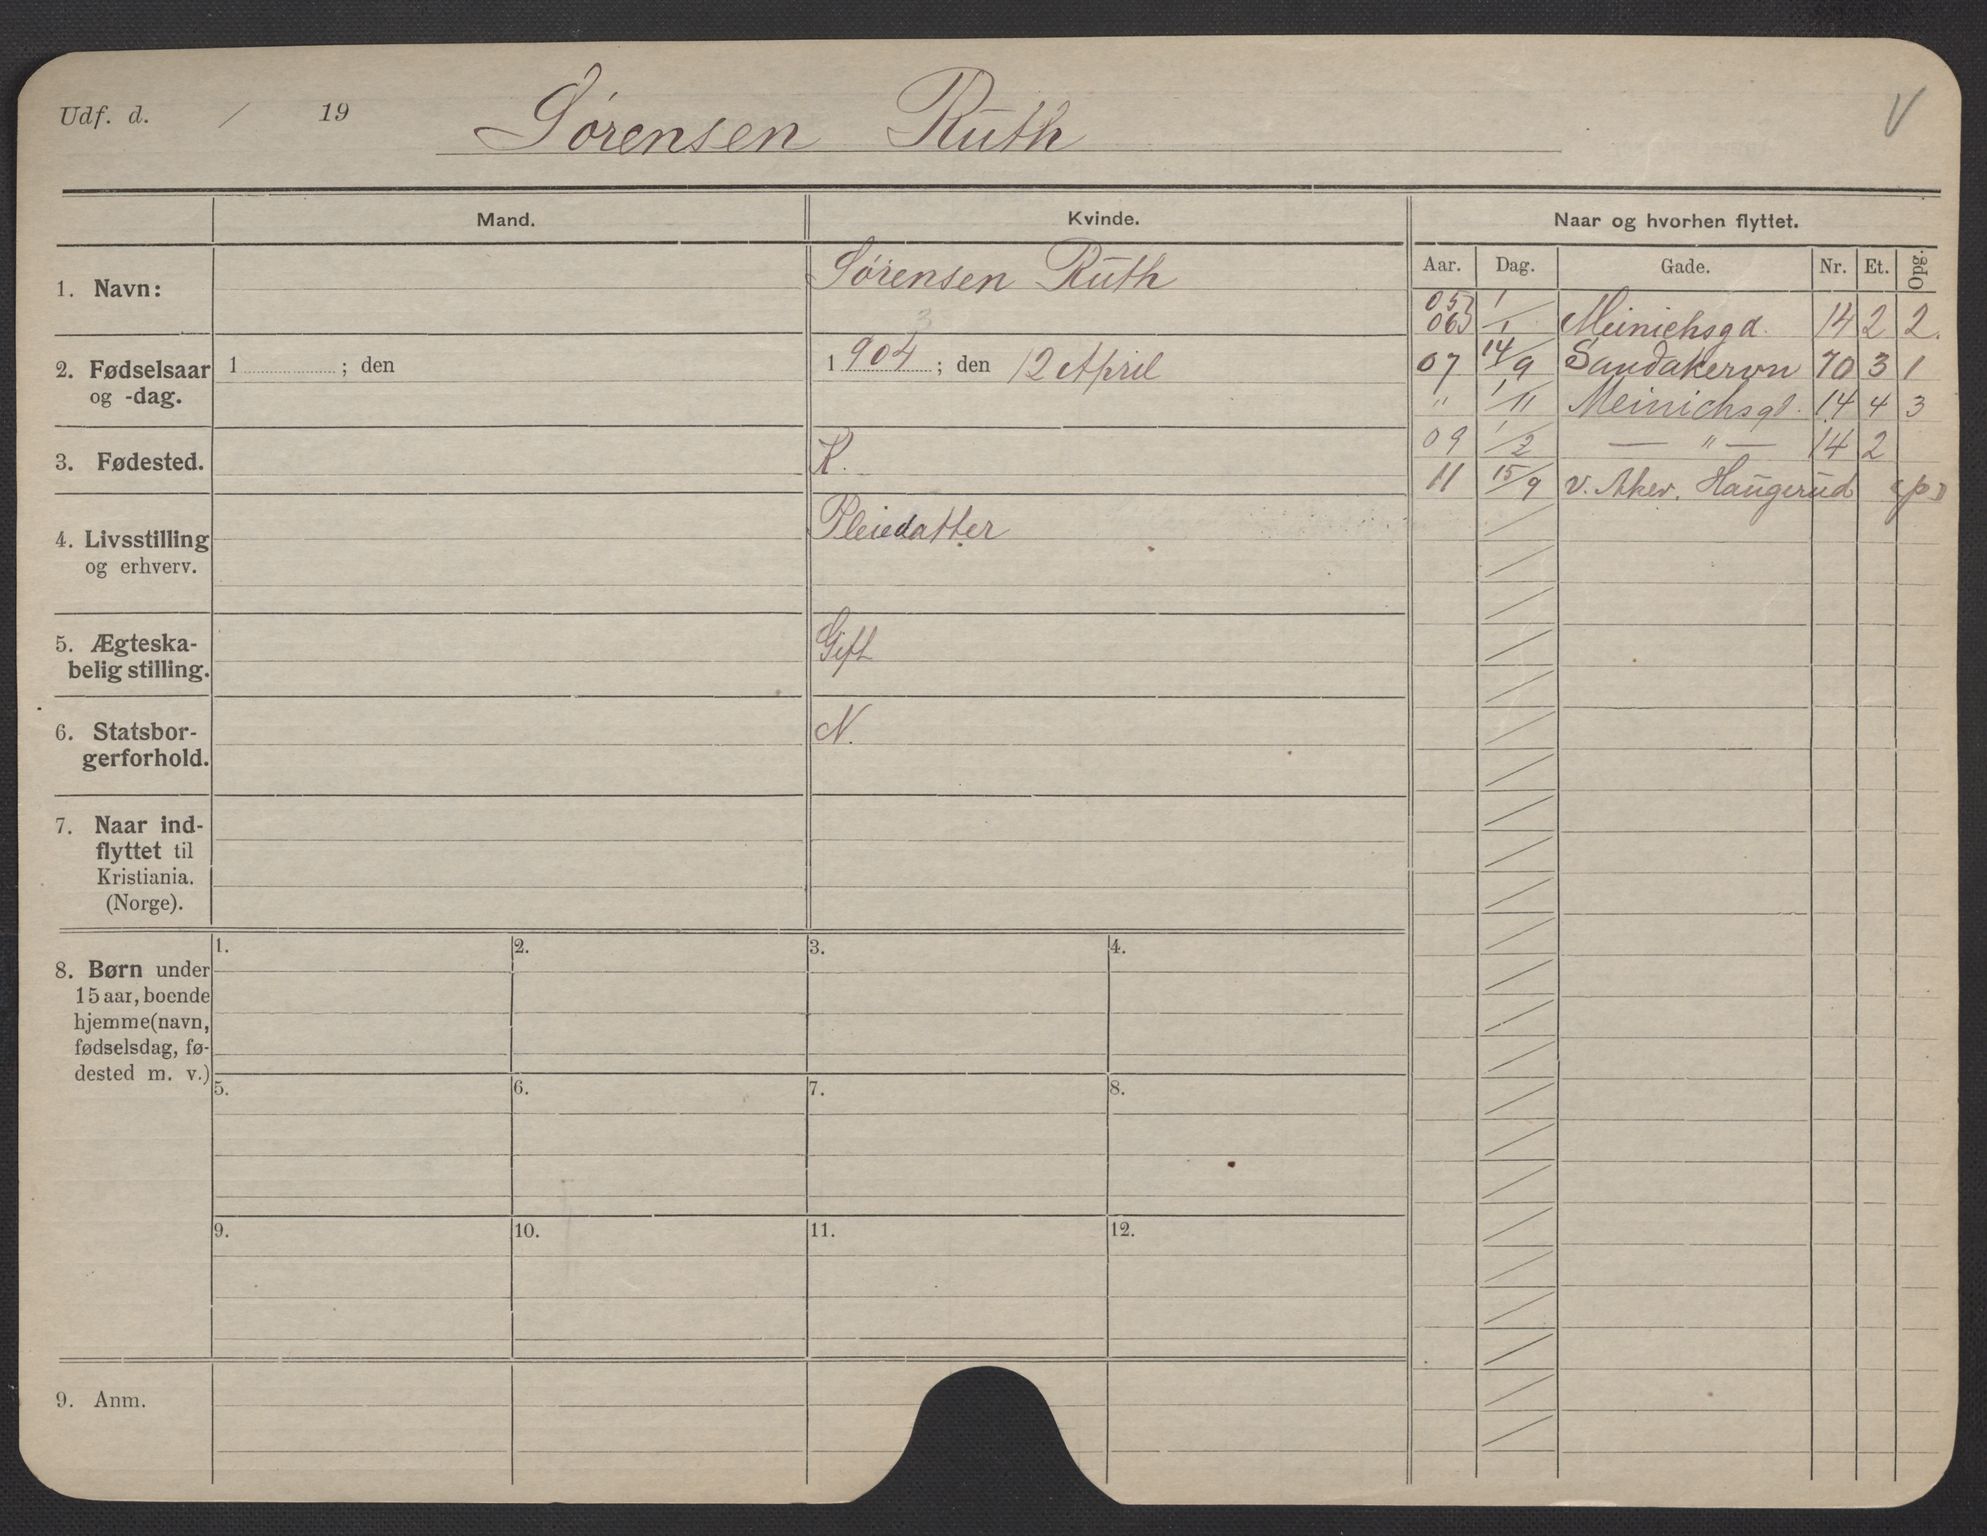 Udf. d. / 19 Sørensen Ruth V
Mand. Kvinde. Naar og hvorhen flyttet.
Aar. Dag. Gade. Nr. Et. Opg.
1. Navn: Sørensen Ruth
2. Fødselsaar 1 ; den 1904 ; den 12 April
3
og -dag.
3. Fødested. K.
4. Livsstilling Pleiedatter
og erhverv.
5. Ægteska- Gift
belig stilling.
6. Statsbor- N.
gerforhold.
7. Naar ind-
flyttet til
Kristiania.
(Norge).
8. Børn under
15 aar, boende
hjemme (navn,
fødselsdag, fø-
dested m. v.)
1. 2. 3. 4.
5. 6. 7. 8.
9. 10. 11. 12.
9. Anm.
05
06 1/1 Meinichsgd. 14 2 2.
07 14/9 Sandakervn 70 3 1
" 1/11 Meinichsgd. 14 4 3
09 1/2 — " — 14 2
11 15/9 V. Aker. Haugerud (p)